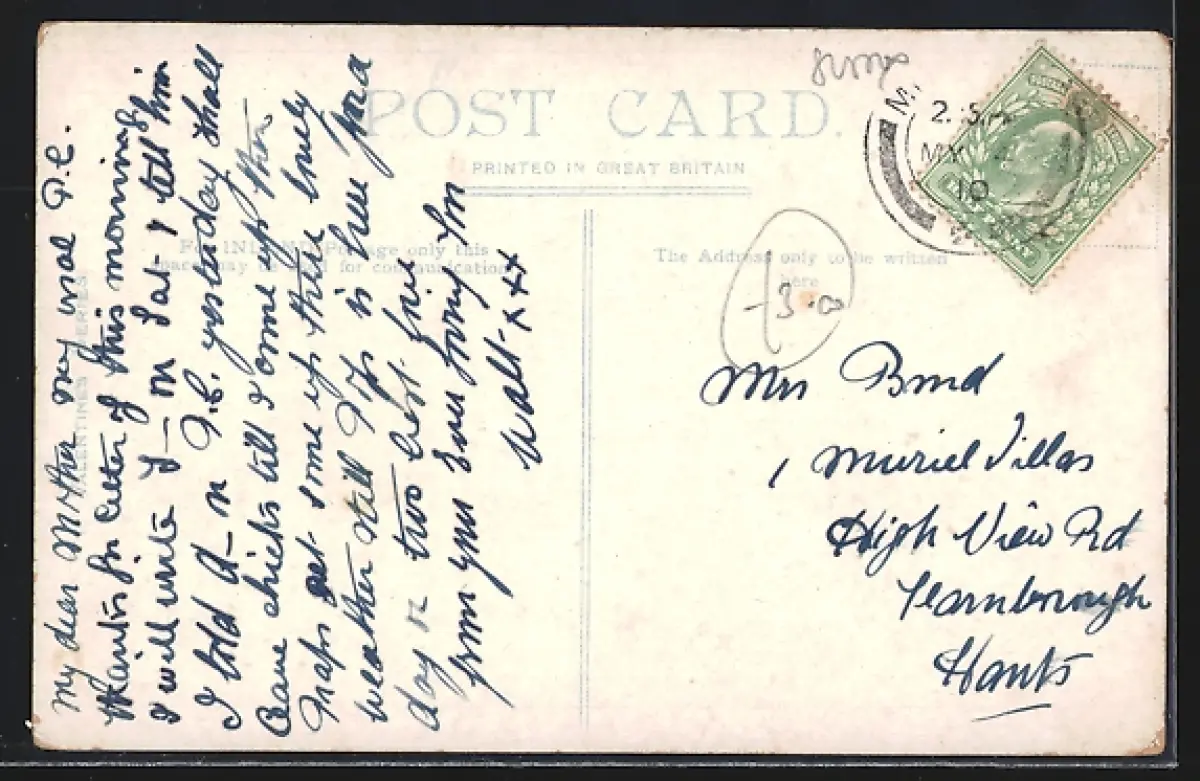 POST CARD.
PRINTED IN GREAT BRITAIN
For INLAND Postage only this
space may be used for communication
The Address only to be written
here
VALENTINES SERIES
My dear Mother my usual P.C.
thanks for letter of this morning
I will write J— on Sat & tell him
I told A—n P.C. yesterday shall
leave chicks till I come up then
praps get some up there lovely
weather still I is here for a
day or two best love
from your ever loving son
Walt- xxx
2.
MY
10
3.00
Mrs Bond
1 Muriel Villas
High View Rd
Farnborough
Hants